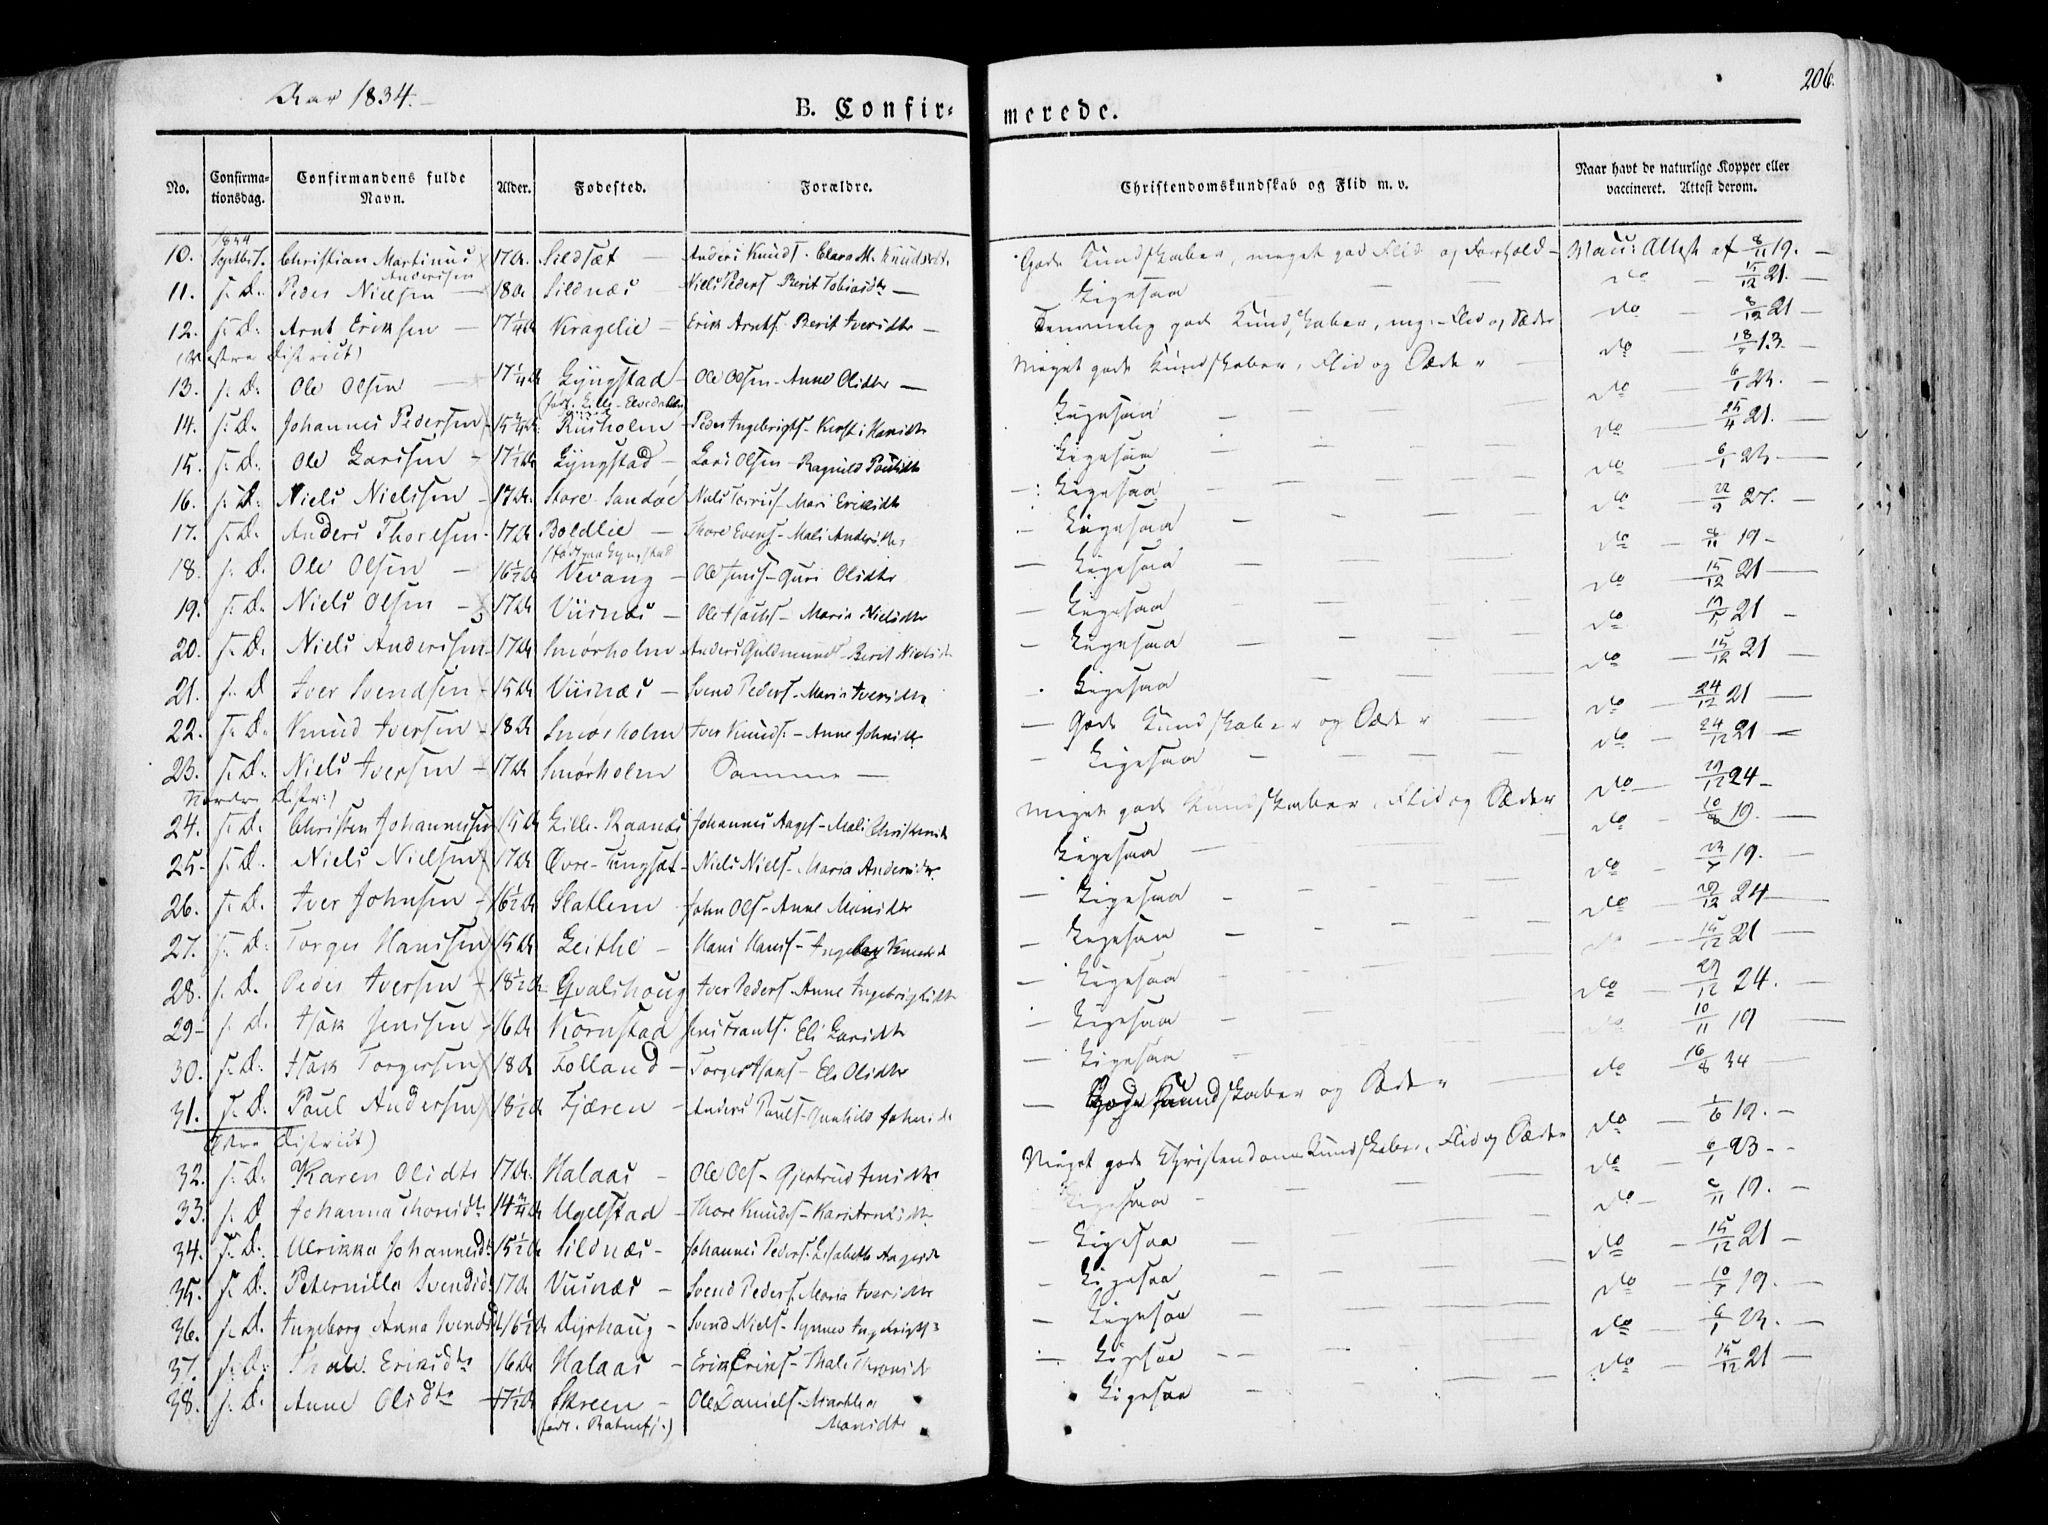 Aar 1834.
206.
B. Confirmerede.
No. Confirmationsdag. Confirmandens fulde Navn. Alder. Fødested. Forældre. Christendomskundskab og Flid m. v. Naar havt de naturlige Kopper eller vaccineret. Attest derom.
10. 1834 Septbr 7. Christian Martinus Andersen 17 Sildsæt - Anders Knuds. Clara M. Knudsdt. Gode Kundskaber, meget god Flid og Forhold - Vacc: Attest af 8/11 19.
11. s. D. Peder Nielsen 18 Sildnæs - Niels Peders - Berit Tobiasdtr - Ligesaa do 15/12 21.
12. s. D. Arnt Eriksen - 17 1/4 Kragelie - Erik Arnts. Berit Iversdtr - Temmelig gode Kundskaber, mg. Flid og Sæder do 8/12 21
(Vestre District)
13. s. D. Ole Olsen 17 1/4 Lyngstad - Ole Olsen - Anne Olsdtr - Meget gode Kundskaber, Flid og Sæder do 18/ 13.
14. s. D. Johannes Pedersen 15 3/4 Rusholm - Peder Ingebrigts - Kirsti Hansdtr Ligesaa do 6/1 23.
15. s. D. Ole Larssen - 17 1/2 Lyngstad - Lars Olsen - Ragnild Paulsdtr Ligesaa do 25/4 21.
16. s. D. Niels Nielssen 17 Store Sandøe Mari Eriksdtr Ligesaa do 6/1 23
17. s. D. Anders Thoresen 17 Boldlie - Thore Evens - Mali Andersdtr Ligesaa do
18. s. D. Ole Olsen - 16 1/2 (født paa Lyngstad Vevang - Ole Jens - Guri Olsdtr Ligesaa do 8/11 19
19. s. D. Niels Olsen - 17 Viisnæs - Maria Nielsdtr Ligesaa do 15/12 21
20. s. D. Niels Anderssen 17 Smørholm Anders Guldmunds - Berit Nielsdtr Ligesaa do 21
21. s. D Iver Svendsen 15 Viisnæs - Svend Peders - Maria Iversdtr Ligesaa do 15/12 21
22. s. D. Knud Iversen - 18 Smørholm Iver Knuds. - Anne Johnsdtr - Gode Kundskaber og Sæder do 24/12 21
23. s. D. Niels Iversen - 17 Smørholm Samme - Ligesaa do 24/12 21
(Nordre Distr:)
24. s. D. Christen Johannessen 15 Lille-Raanæs Johannes Aages - Mali Christensdtr Meget gode Kundskaber, Flid og Sæder do 29/12 24
25. s. D. Niels Nielsen 17 Øvre-Tungsæt - Niels Niels - Maria Andersdtr Ligesaa do 10/8 19.
26. s. D. Iver Johnsen - 16 1/2 Slatlem John Ols - Anne Monsdtr Ligesaa do 19.
27. s. D Torger Hanssen 15 Leithe - Hans Hans - Ingebor Knudsdt Ligesaa do 29/12 24
28. s. D. Peder Iversen 18 1/2 Gvalshoug Iver Peders - Anne Ingebrigtsdtr Ligesaa do 15/12 21
29 - s. D. Isak Jenssen - 16 Kornstad Jens Frants. Eli Larsdtr Ligesaa do 29/12 24.
30. s. D. Isak Torgersen 18 Folland - Torger Hans - Eli Olsdtr Ligesaa 10/11 19
31. s. D. Paul Andersen 18 1/2 Fjæren - Anders Pauls - Gunhild Johnsdt - Gode Kundskaber og Sæder do 16/8 34
(Østre District)
32. s. D. Karen Olsdtr 17 Halaas - Ole Ols - Gjertrud Jensdtr Meget gode Christendoms Kundskaber, Flid og Sæder do 19.
33. s. D Johanna Thoresdtr 14 3/4 Ugelstad - Thore Knuds - Kari Arntsdtr Ligesaa do 6/1 23
34. s. D. Ulrikka Johannesdt. 15 1/2 Sildnæs - Johannes Peders. Lisabeth Aagesdt Ligesaa do 19.
35. s. D. Peternilla Svendsdt. 17 Viisnæs - Svend Peders. Maria Iversdtr Ligesaa do 15/12 21
36. s. D. Ingeborg Anna Svendsdt 16 1/2 Dyrhaug - Svend Niels - Synnev Ingebrigts Ligesaa do 19.
37. s. D. Thale Eriksdtr 16 Halaas - Erik Eriks - Thale Ligesaa do 6/1 23.
38. s. D. Anne Olsdtr 17 1/2 Skreen - Ole Daniels - Martha Monsdtr Ligesaa do 15/12 21